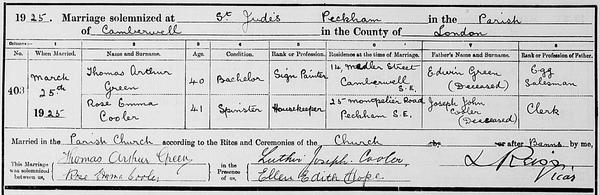 1925. Marriage solemnized at St Jude's Peckham in the Parish
of Camberwell in the County of London
Columns:— 1 2 3 4 5 6 7 8
No. When Married. Name and Surname. Age. Condition. Rank or Profession. Residence at the time of Marriage. Father's Name and Surname. Rank or Profession of Father.
403 March 25th 1925 Thomas Arthur Green 40 Bachelor Sign Painter 14 Medlar Street Camberwell S.E. Edwin Green (Deceased) Egg Salesman
Rose Emma Cooler 41 Spinster Housekeeper 25 Montpelier Road Peckham S.E. Joseph John Cooler (Deceased) Clerk
Married in the Parish Church according to the Rites and Ceremonies of the Church or after Banns by me,
This Marriage was solemnized between us, Thomas Arthur Green in the Presence of us, Luther Joseph Cooler
Rose Emma Cooler Ellen Edith Hope Vicar